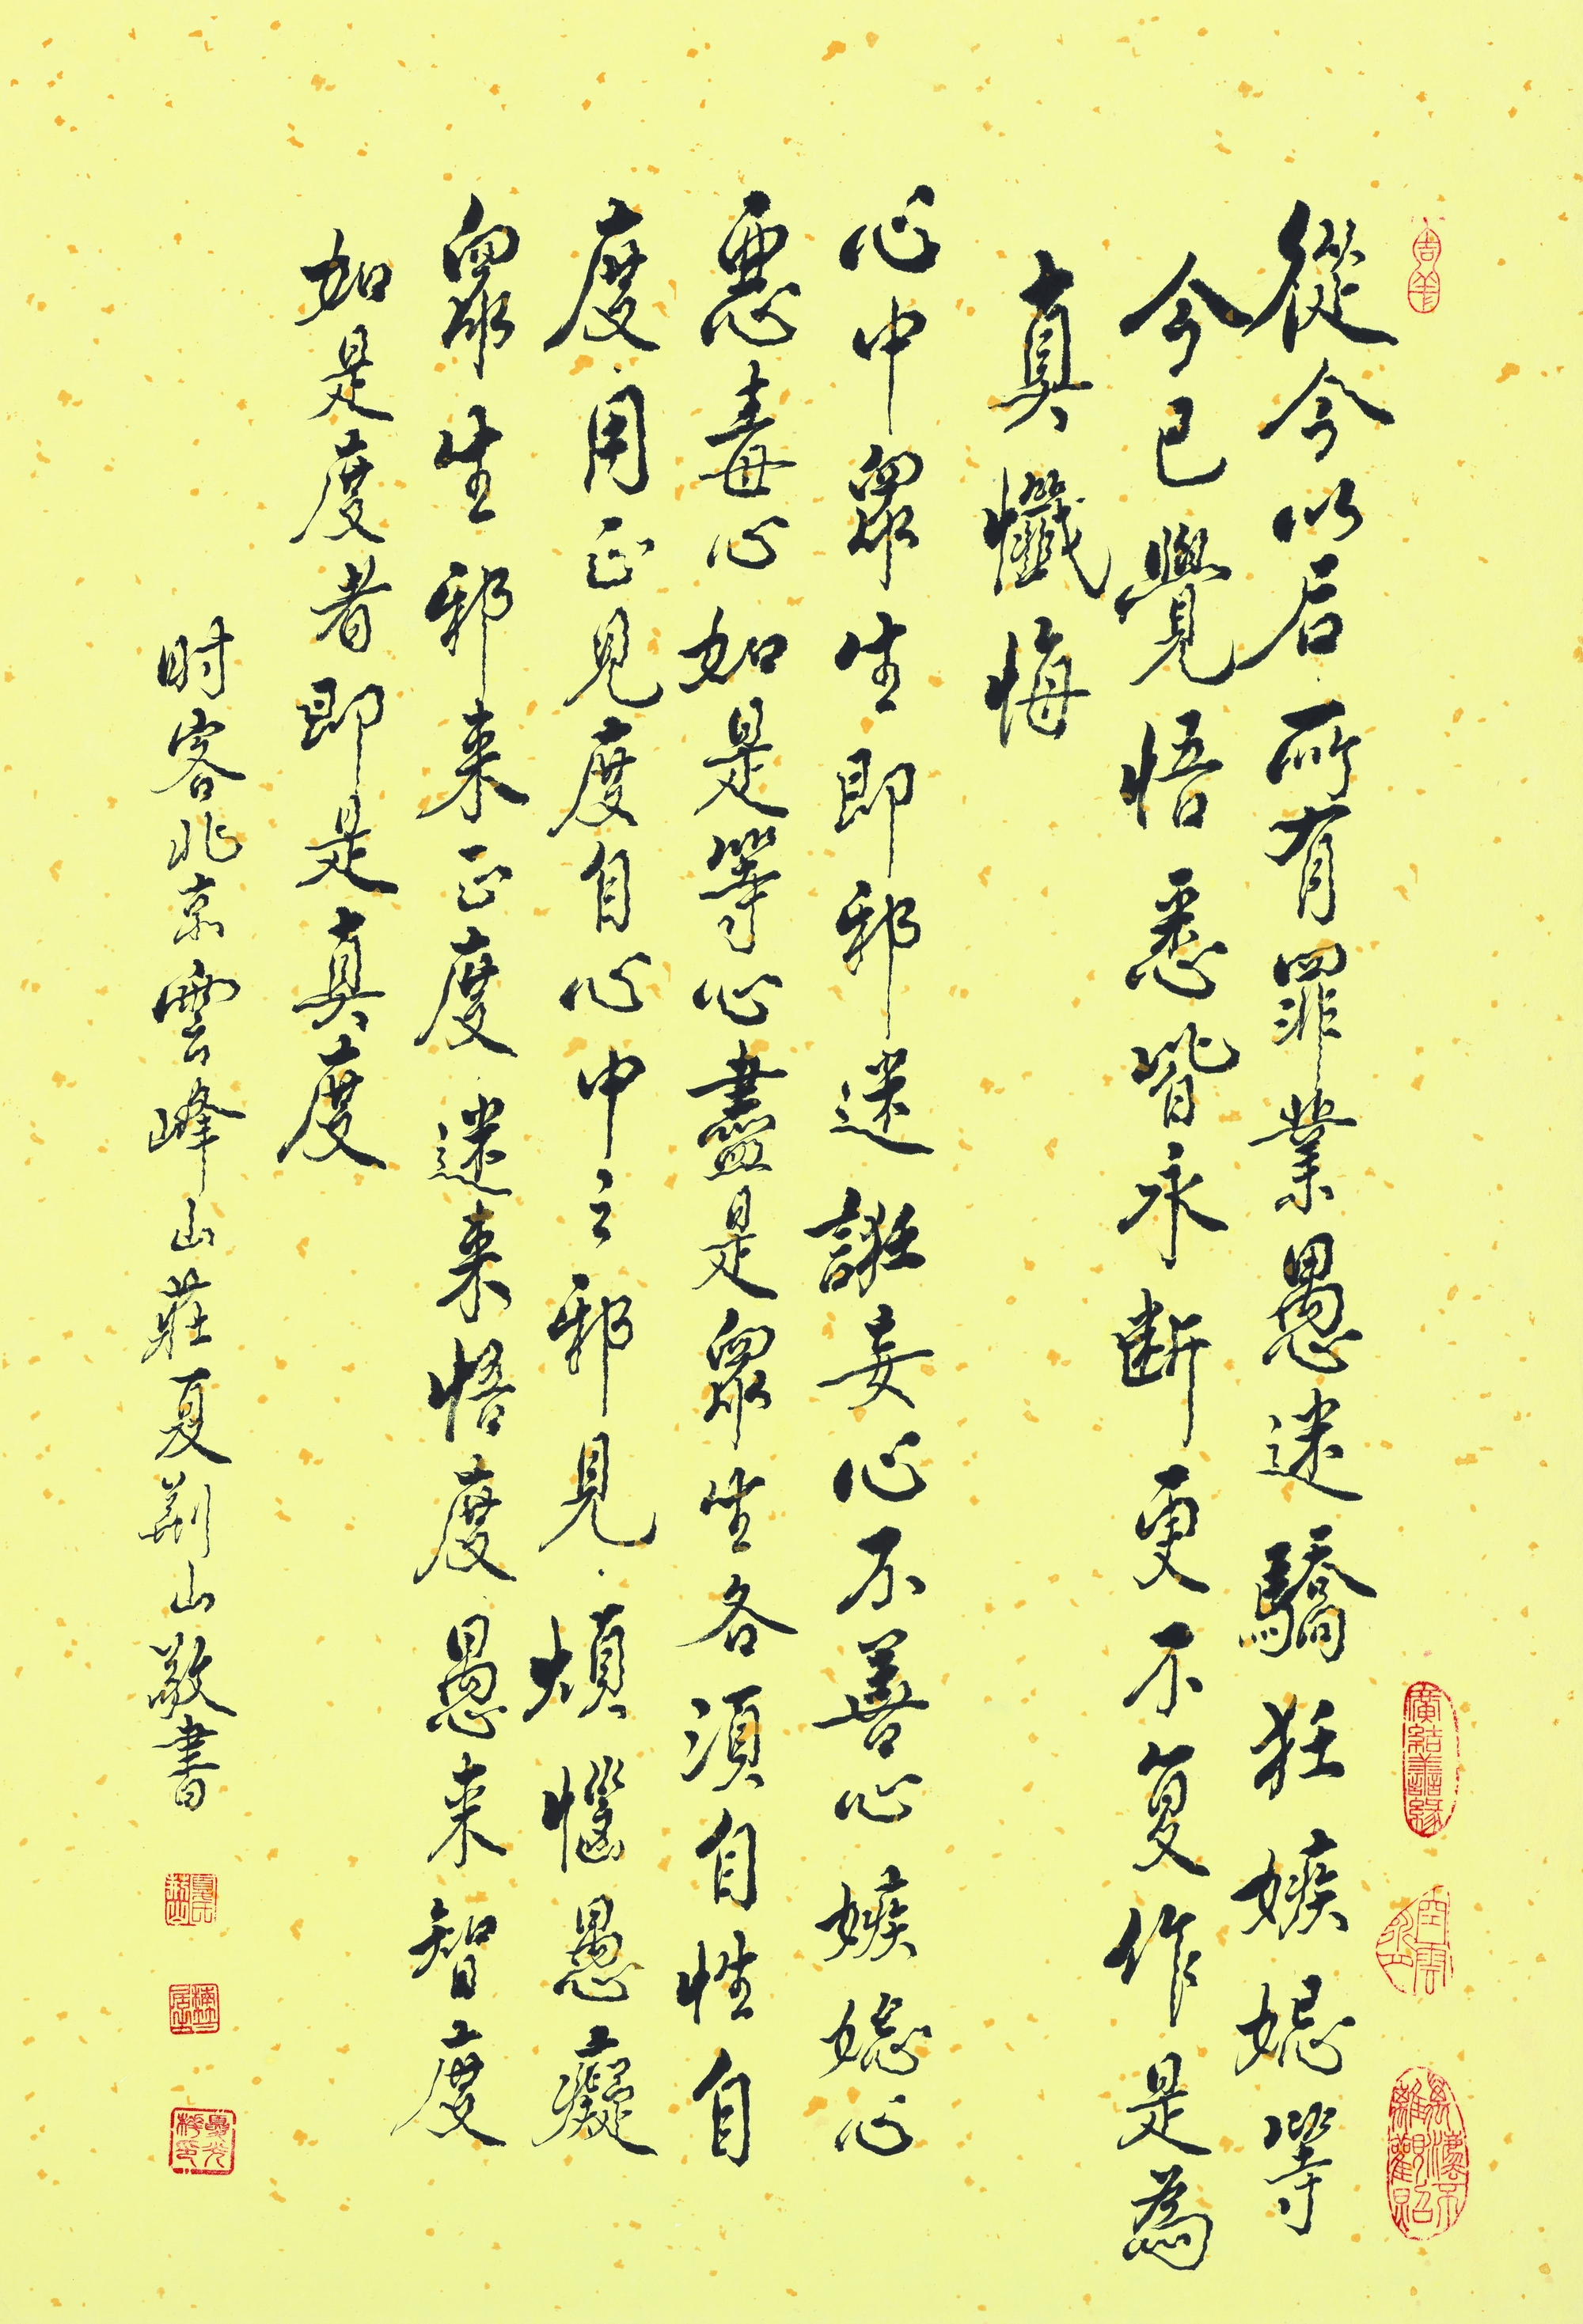 從今以后所有罪業愚迷驕狂嫉妒等
今已覺悟悉皆永断更不复作是為
真懺悔
心中眾生即邪迷誑妄心不善心嫉妒心
惡毒心如是等心盡是眾生各須自性自
度用正見度自心中之邪見煩惱愚癡
眾生邪来正度迷来悟度愚来智度
如是度者即是真度
时客北京雲峰山莊夏荆山敬書
吉羊
廣結善緣